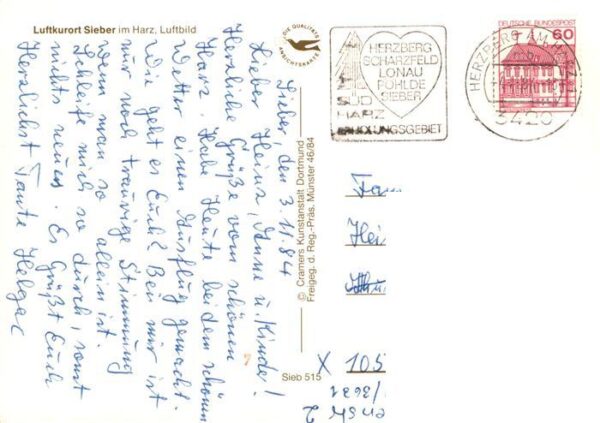 Luftkurort Sieber im Harz, Luftbild
DIE QUALITÄTS
ANSICHTSKARTE
HERZBERG
SCHARZFELD
LONAU
POHLDE
SIEBER
SÜD
HARZ
ERHOLUNGSGEBIET
HERZBERG AM HARZ
3420
DEUTSCHE BUNDESPOST
60
Sieber, den 3.11.84
Lieber Heinz, Anne u. Kinder!
Herzliche Grüße vom schönen
Harz. Habe Heute bei dem schönen
Wetter einen Ausflug gemacht.
Wie geht es Euch? Bei mir ist
nur noch traurige Stimmung
wenn man so allein ist.
Schleife mich so durch, sonst
nichts neues. Es Grüßt Euch
Herzlichst Tante Helga
© Cramers Kunstanstalt Dortmund
Freigeg. d. Reg.-Präs. Münster 46/84
Sieb 515
Fam
Hei
X 105